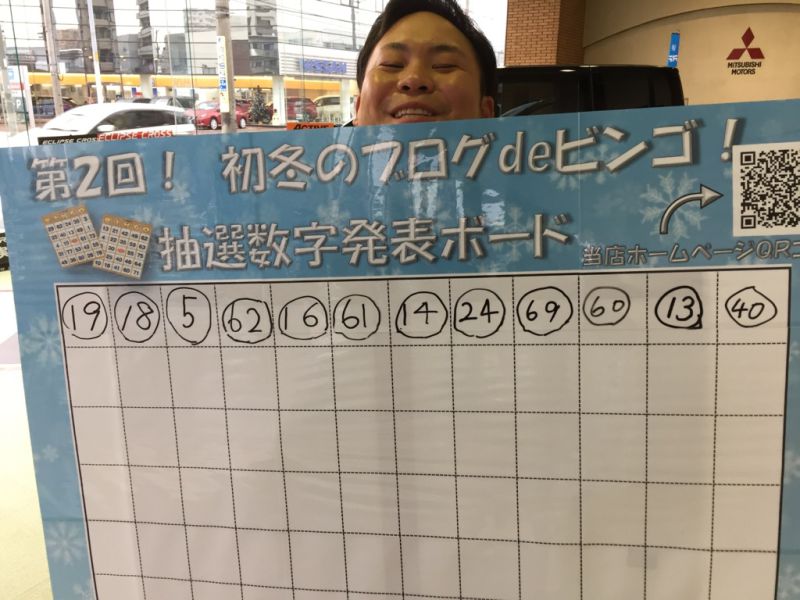 MITSUBISHI
MOTORS
ECLIPSE CROSS
ECLIPSE CROSS
第2回! 初冬のブログdeビンゴ!
抽選数字発表ボード
当店ホームページQRコ
19 18 5 62 16 61 14 24 69 60 13 40